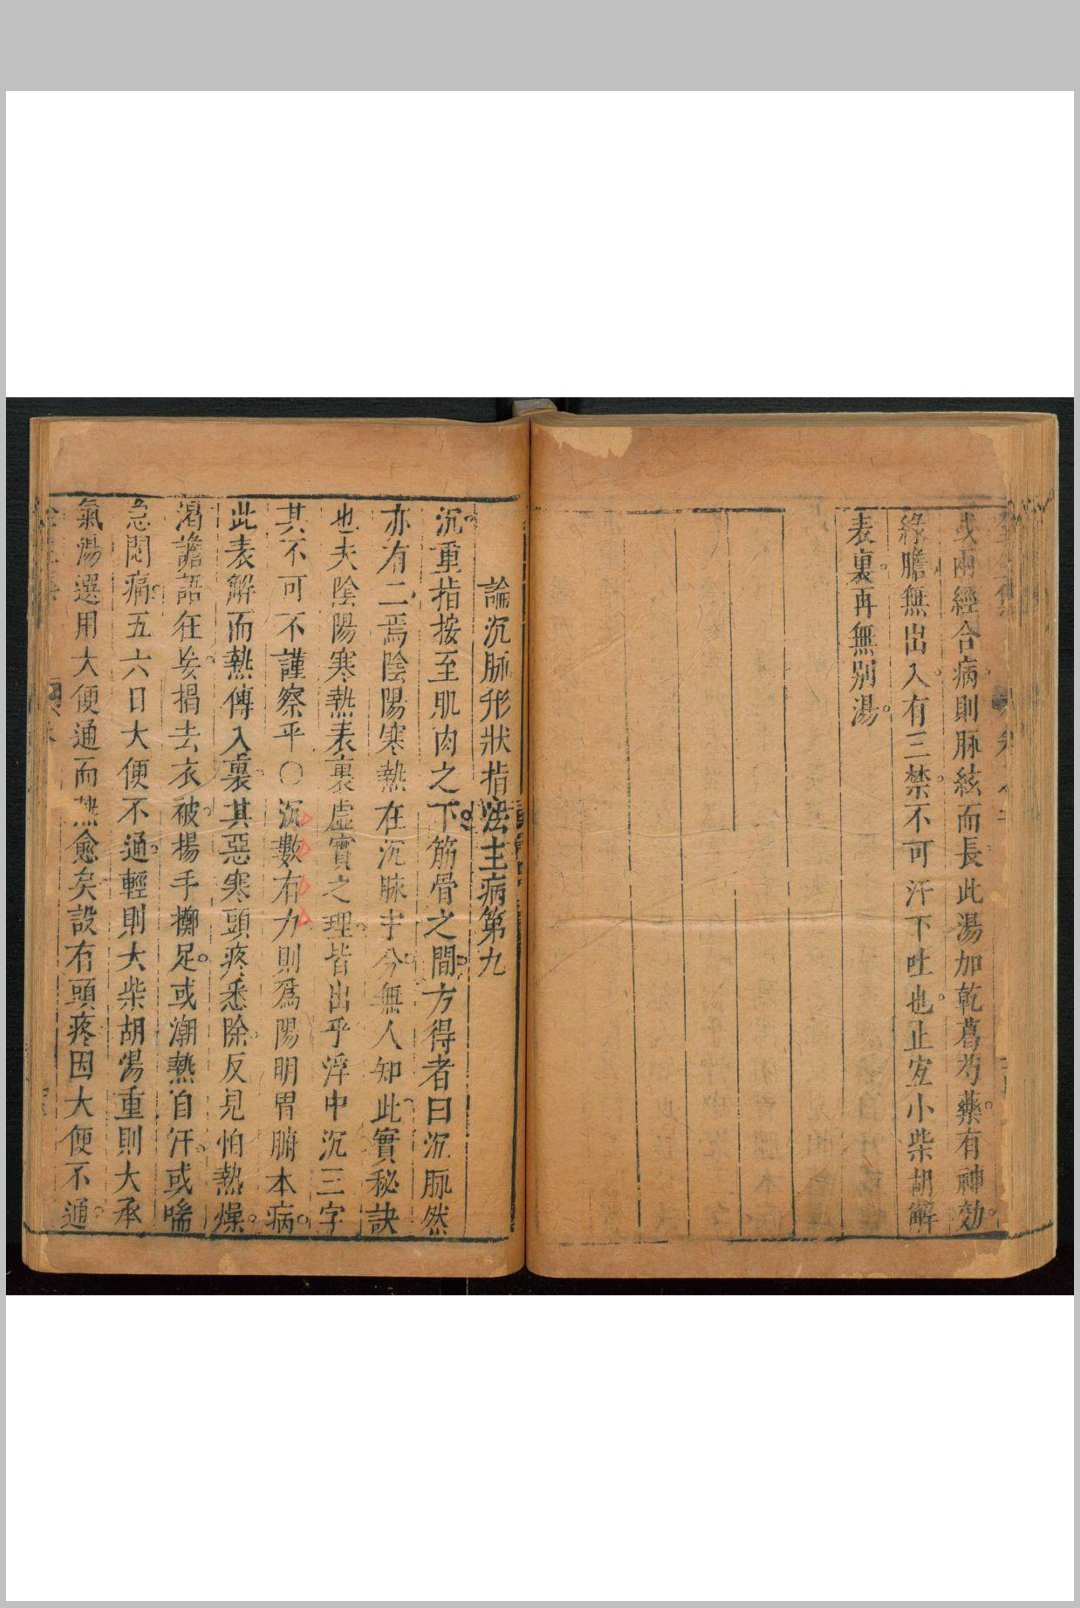 或兩經合病則脉絃而長此湯加乾葛芍藥有神効
緣膽無出入有三禁不可汗下吐也止宜小柴胡解
表裏再無别湯
論沉脉形狀指法主病第九
沉重指按至肌肉之下筋骨之間方得者曰沉脉然
亦有二焉陰陽寒熱在沉脉中分無人知此實秘訣
也夫陰陽寒熱表裏虛實之理皆出乎浮中沉三字
其不可不謹察乎○沉數有力則爲陽明胃腑本病
此表解而熱傳入裏其惡寒頭疼悉除反見怕熱燥
渴譫語狂妄揭去衣被揚手擲足或潮熱自汗或喘
急悶痛五六日大便不通輕則大柴胡湯重則大承
氣湯選用大便通而熱愈矣設有頭疼因大便不通